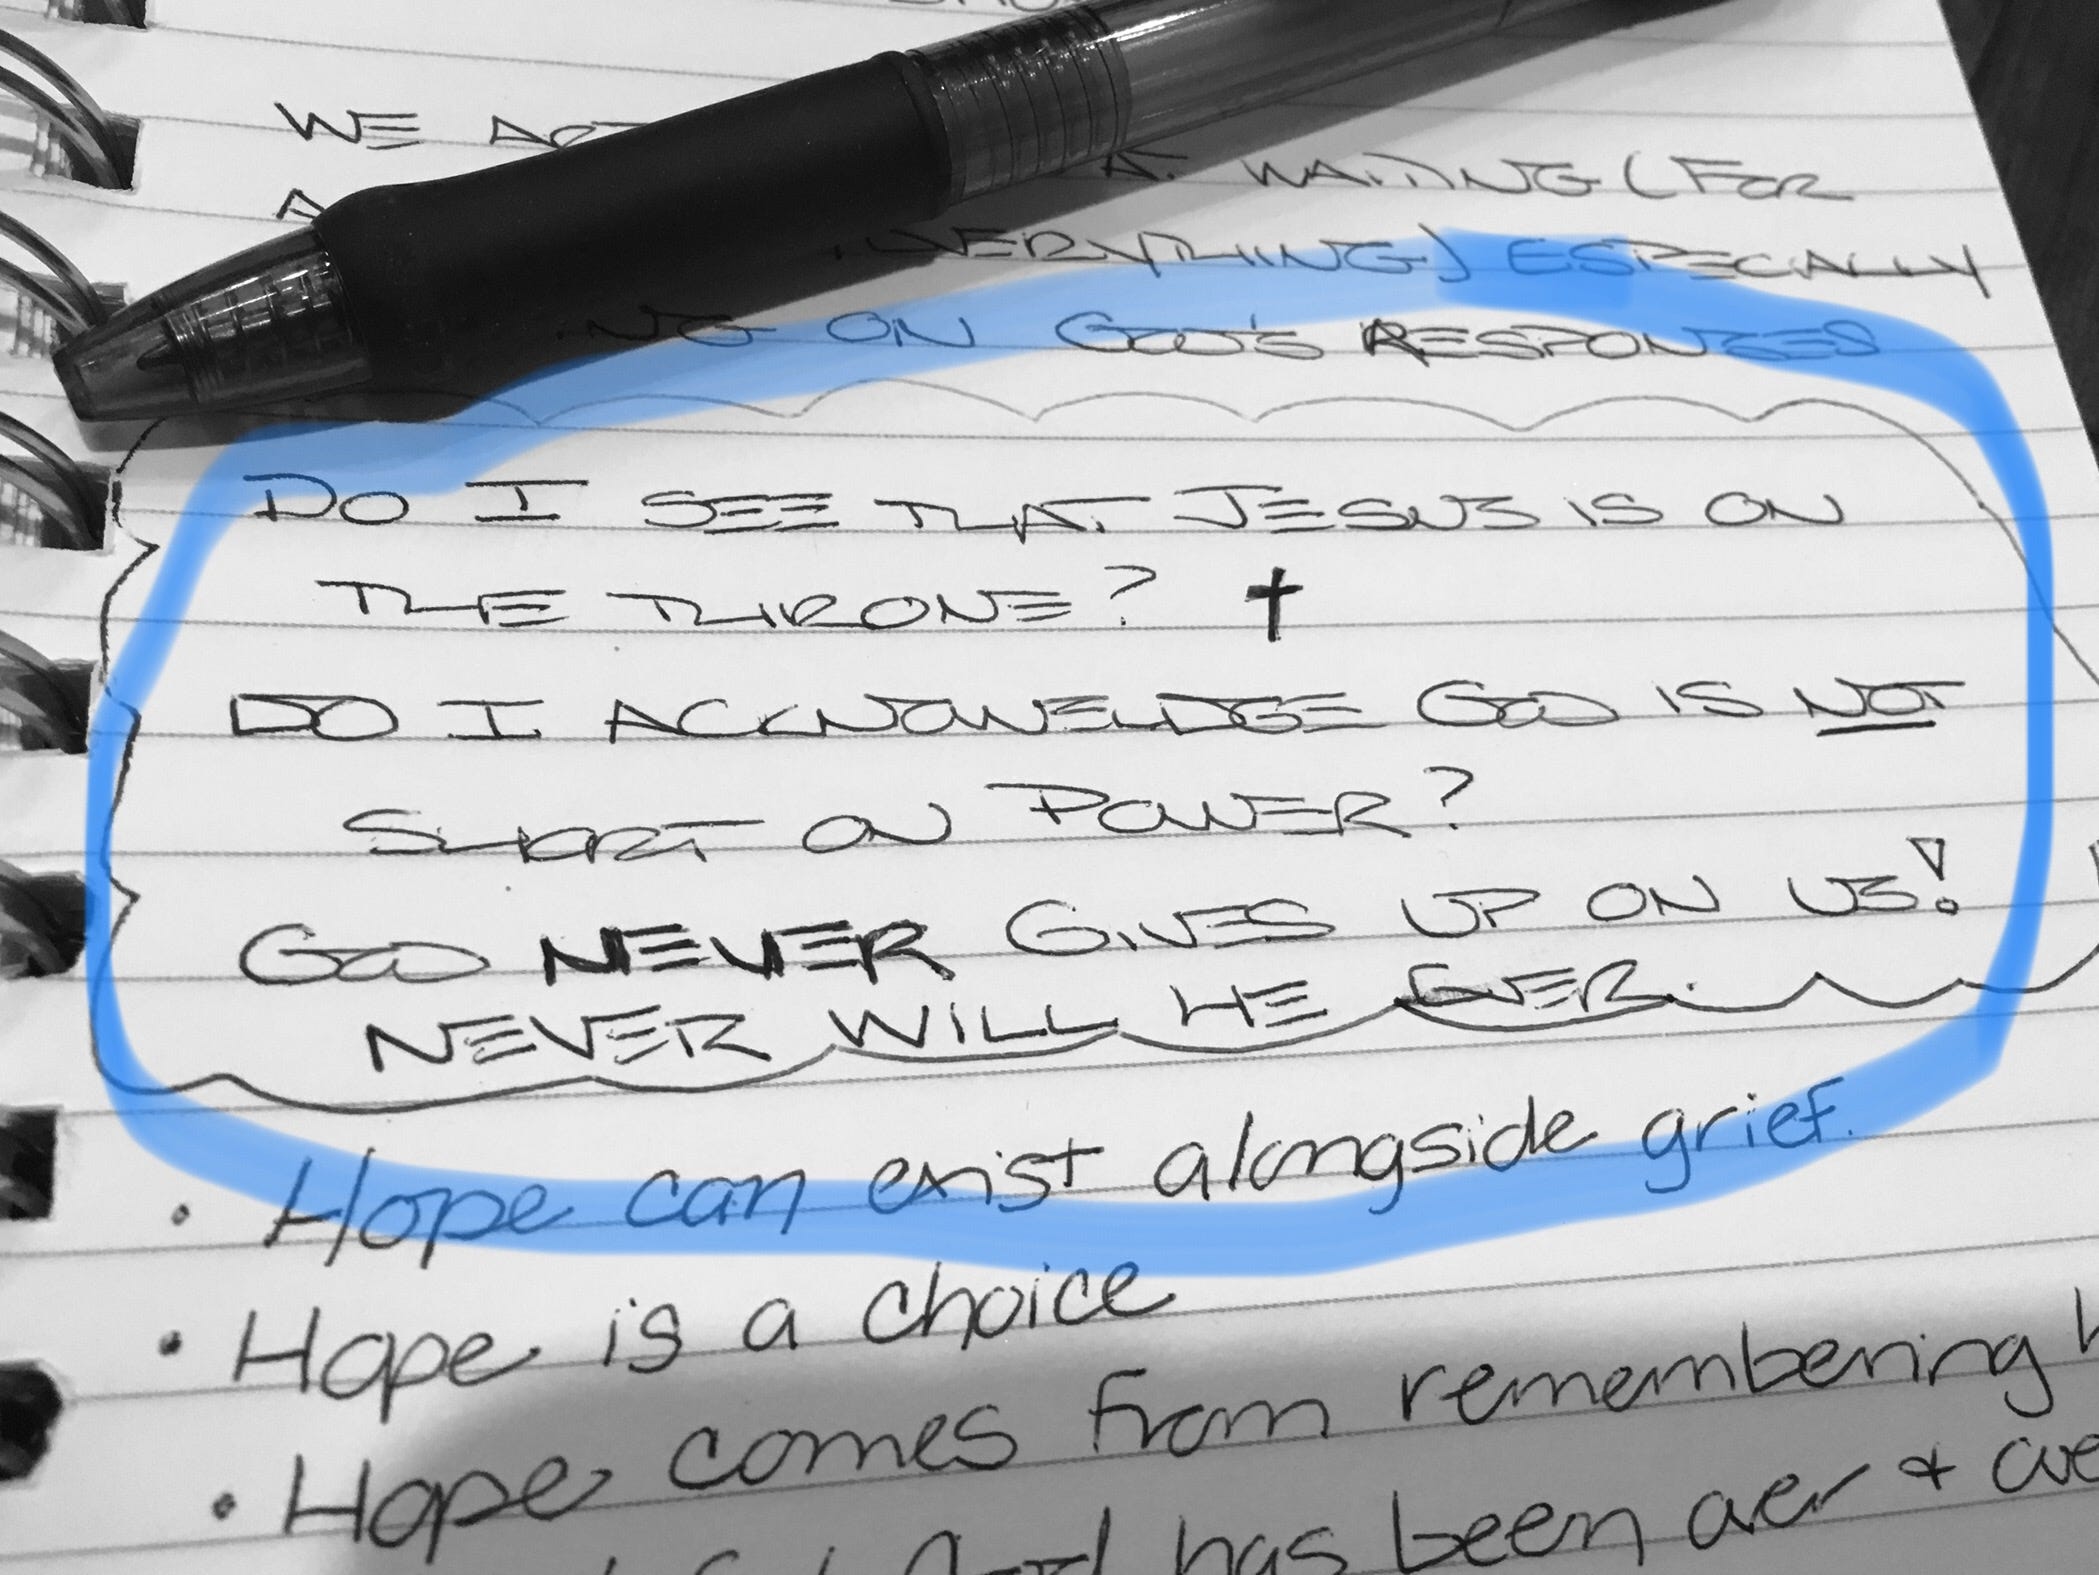 WE
AT WAITING (FOR
EVERYTHING) ESPECIALLY
ON GOD'S RESPONSES
DO I SEE THAT JESUS IS ON
THE THRONE? ✝
DO I ACKNOWELDGE GOD IS NOT
SHORT ON POWER?
GOD NEVER GIVES UP ON US!
NEVER WILL HE EVER.
• Hope can exist alongside grief.
• Hope is a choice
• Hope comes from remembering
God has been over + ove